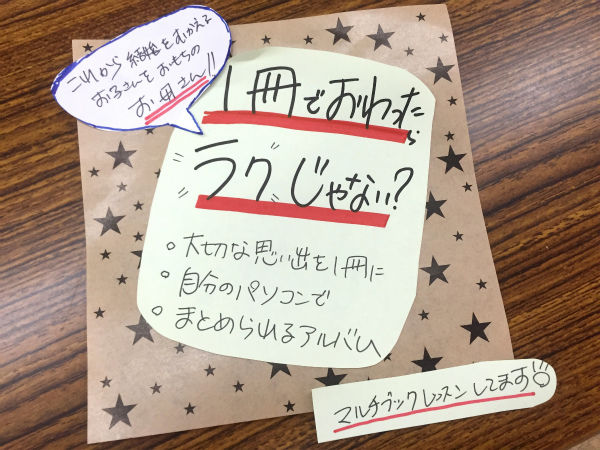 これから 結婚をむかえる
お子さんをおもちの
お母さん!!
1冊でおわったら
ラクじゃない?
。大切な思い出を1冊に
。自分のパソコンで
。まとめられるアルバム
マルチブックレッスンしてます